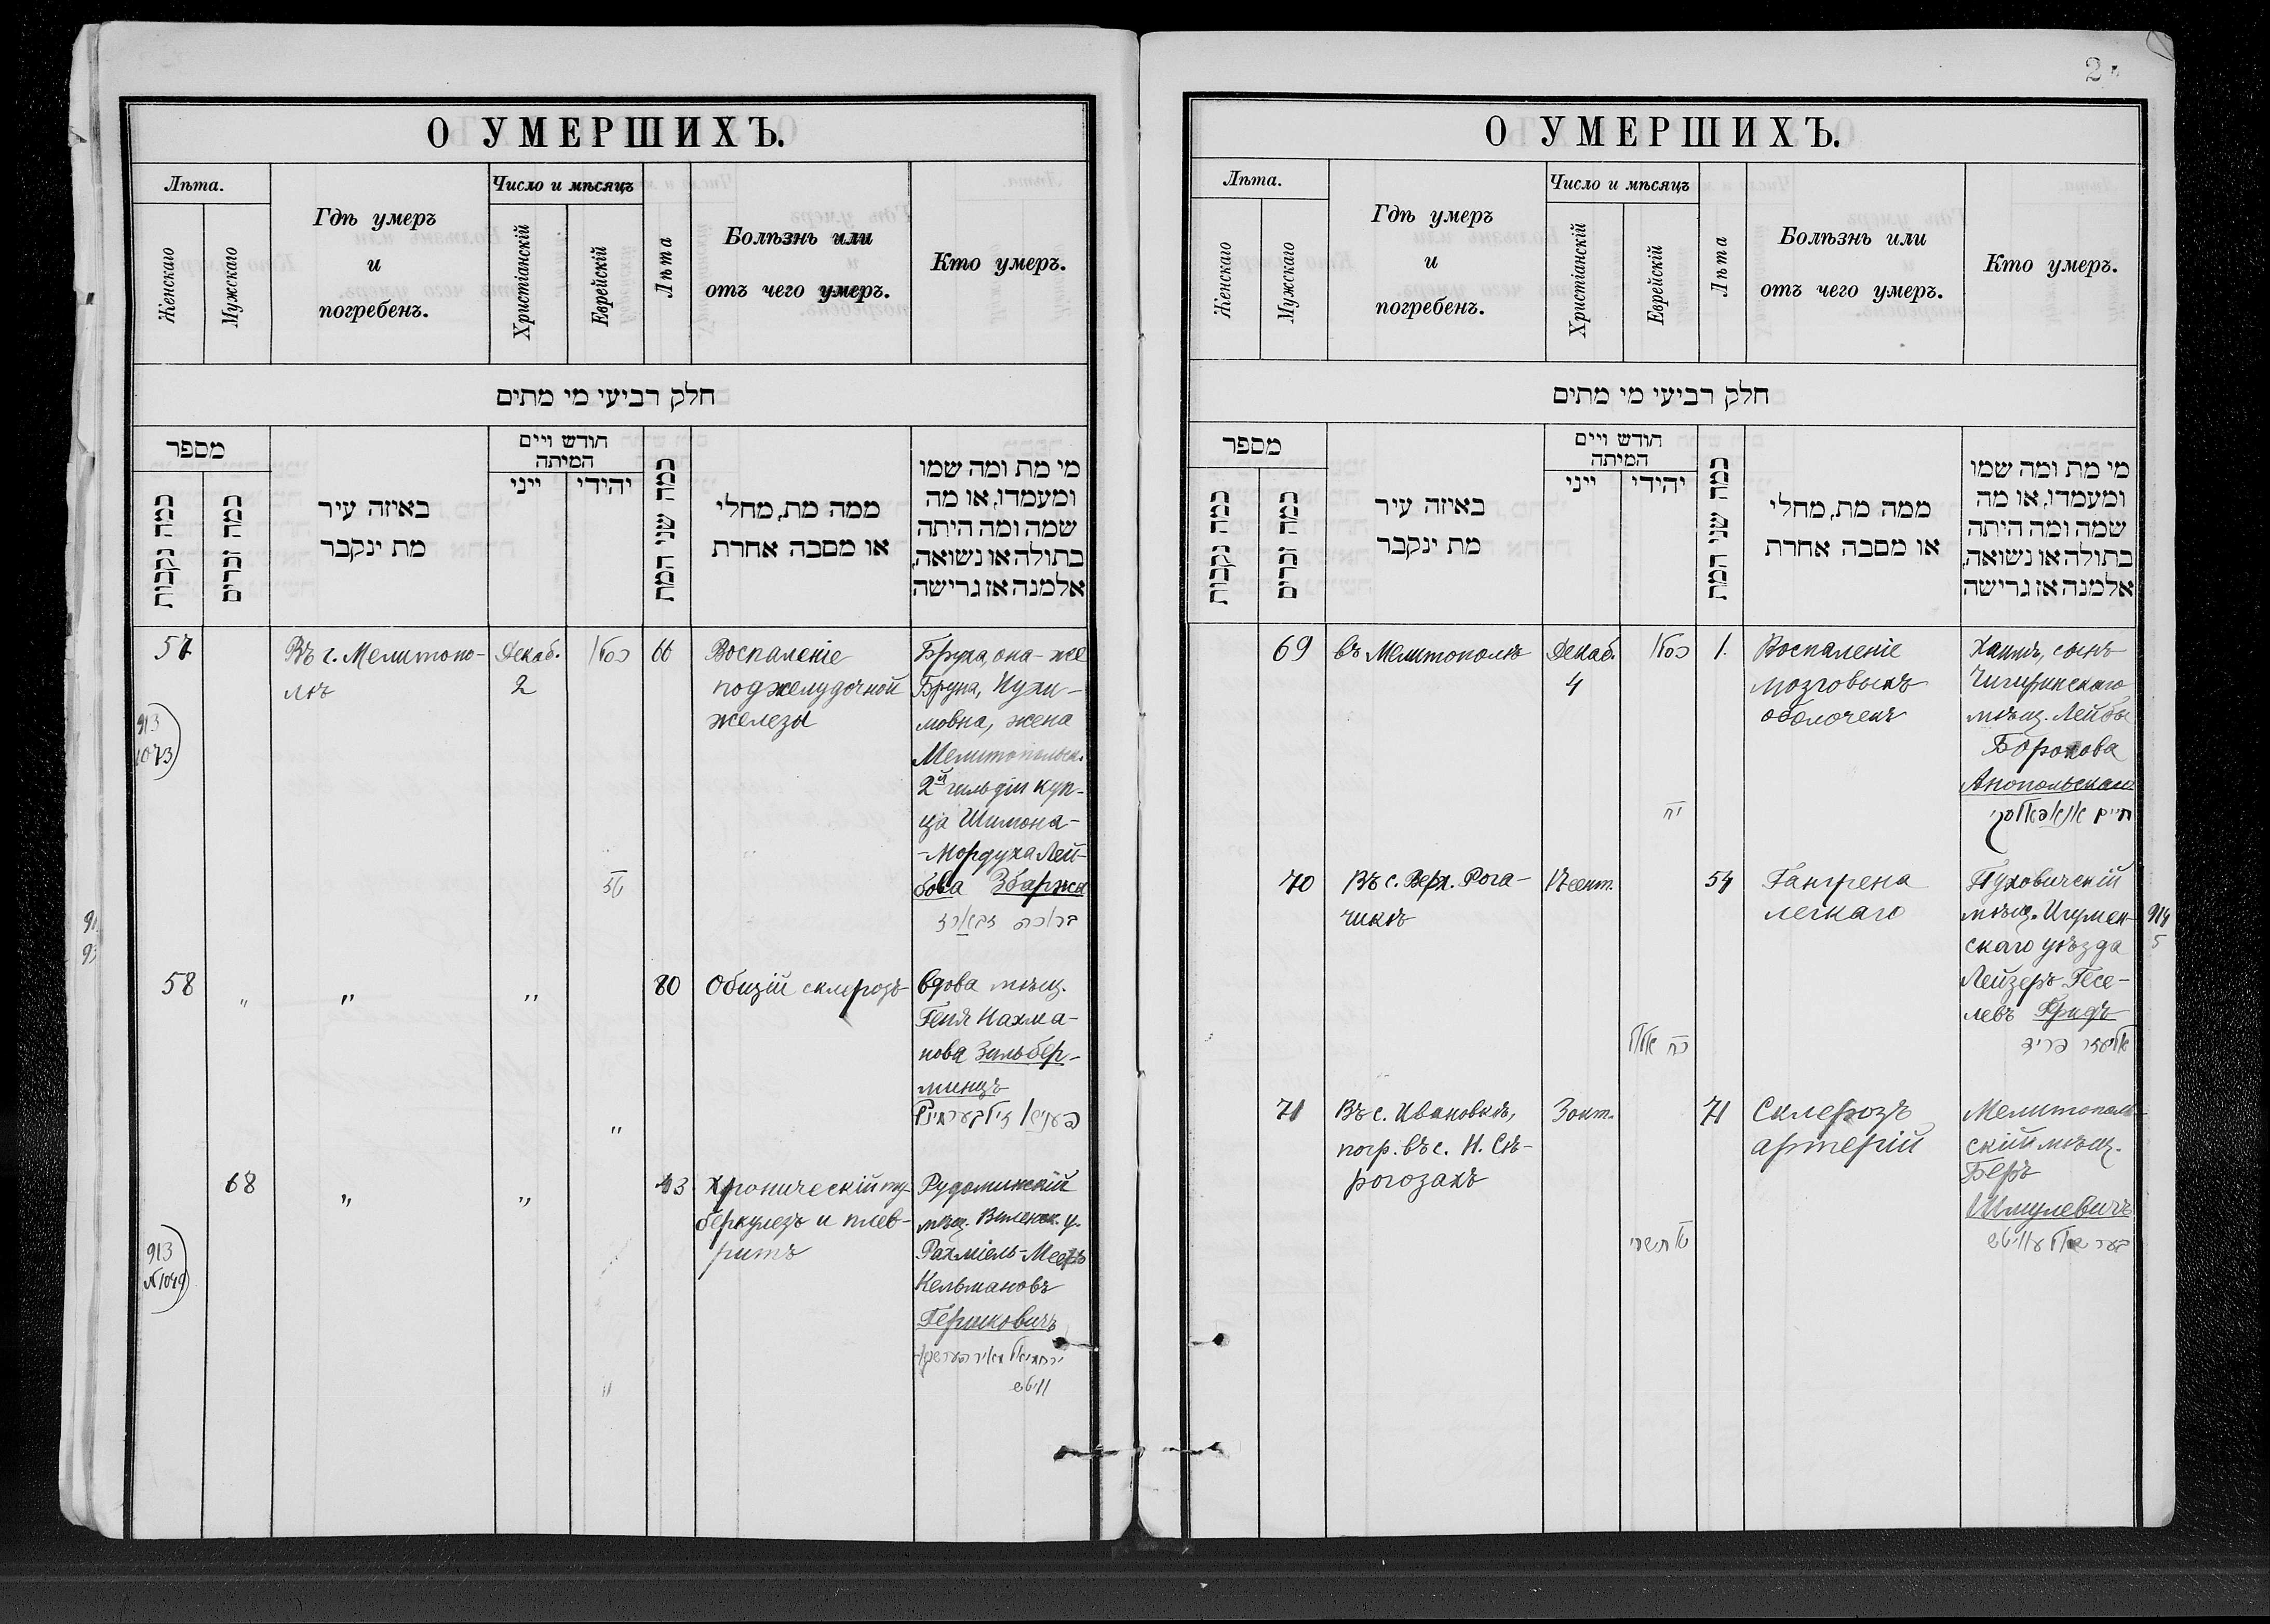 О УМЕРШИХЪ.
Лѣта.
Женскаго
Мужскаго
Гдѣ умеръ
и
погребенъ.
Число и мѣсяцъ
Христіанскій
Еврейскій
Лѣта
Болѣзнь или
отъ чего умеръ.
Кто умеръ.
חלק רביעי מי מתים
מספר
כמה נקבות
כמה זכרים
באיזה עיר
מת ינקבר
חודש ויים
המיתה
ייני
יהודי
כמה שני המת
ממה מת, מחלי
או מסבה אחרת
מי מת ומה שמו
ומעמדו, או מה
שמה ומה היתה
בתולה או נשואה,
אלמנה אז גרישה
57
913
1073
Въ г. Мелитопо-
лѣ
Декаб.
2
כסלו
66
Воспаленіе
поджелудочной
железы
Бруха, она-же
Бруна,
мовна, жена
Мелитопольск.
2й гильдіи куп-
ца Шимона-
-Мордуха Лей-
бова Збаржа
58
"
"
"
80
Общій склерозъ
Вдова мѣщ.
Геня Нахма-
нова Зильбер-
минцъ
"
68
913
№1049
"
"
43
Хроническій ту-
беркулезъ и плев-
ритъ
Рудоминскій
мѣщ. Виленск. у.
Рахміель-Мееръ
Кельмановъ
Гершковичъ
"
О УМЕРШИХЪ.
Лѣта.
Женскаго
Мужскаго
Гдѣ умеръ
и
погребенъ.
Число и мѣсяцъ
Христіанскій
Еврейскій
Лѣта
Болѣзнь или
отъ чего умеръ.
Кто умеръ.
חלק רביעי מי מתים
מספר
כמה נקבות
כמה זכרים
באיזה עיר
מת ינקבר
חודש ויים
המיתה
ייני
יהודי
כמה שני המת
ממה מת, מחלי
או מסבה אחרת
מי מת ומה שמו
ומעמדו, או מה
שמה ומה היתה
בתולה או נשואה,
אלמנה אז גרישה
69
Въ Мелитополѣ
Декаб.
4
כסלו
1.
Воспаленіе
мозговыхъ
оболочекъ
Хаимъ, сынъ
Чигиринскаго
мѣщ. Лейбы
Борохова
Анопольскаго
70
Въ с. Верх. Рога-
чикѣ
сент.
כח אלול
54
Гангрена
легкаго
Пуховичскій
мѣщ. Игумен-
скаго уѣзда
Лейзеръ Гесе-
левъ Фридъ
אליעזר פריד
914
5
71
Въ с. Ивановкѣ,
погр. въ с. Н. Сѣ-
рогозахъ
3 окт.
תשרי
71
Склерозъ
артерій
Мелитополь-
скій мѣщ.
Беръ
Шмулевичъ